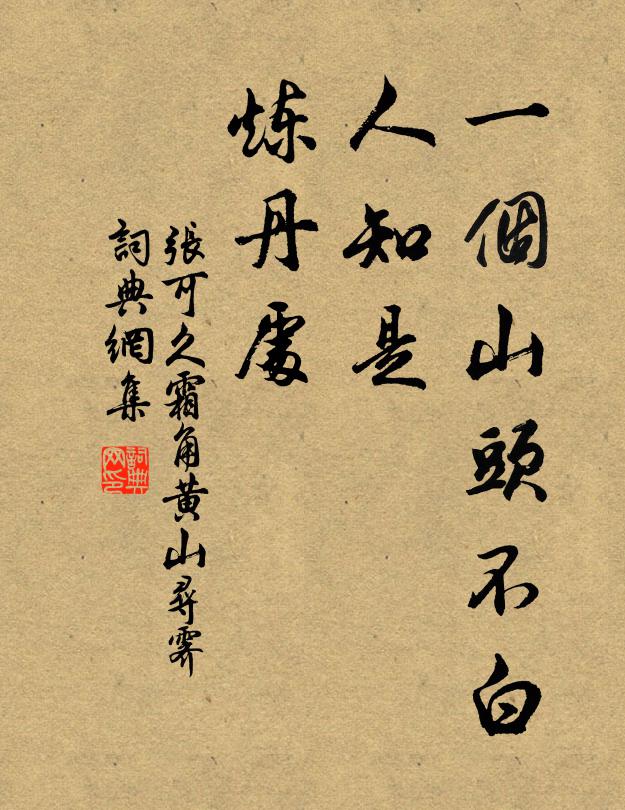 一個山頭不白
人知是
炼丹處
張可久霜角黄山尋霽
詞典網集
詞典网印